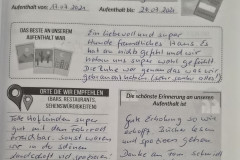 Aufenthalt von: 17.07.2021
Aufenthalt bis: 24.07.2021
DAS BESTE AN UNSEREM
AUFENTHALT WAR
Ein liebevoll und super
Hunde freundliches Haus. Es
hat an nichts gefehlt und wir
haben uns super wohl gefühlt
Die Ruhe war genau das was wir
gebraucht haben
ORTE DIE WIR EMPFEHLEN
(BARS, RESTAURANTS,
SEHENSWÜRDIGKEITEN)
super
gut mit dem Fahrrad
erreichbar. Sonst waren
wir in der schönen
Landschaft viel spazieren
Die schönste Erinnerung an unseren
Aufenthalt ist
Gute Erholung so wie
Bücher lesen
und spazieren gehen
Danke an Fam.